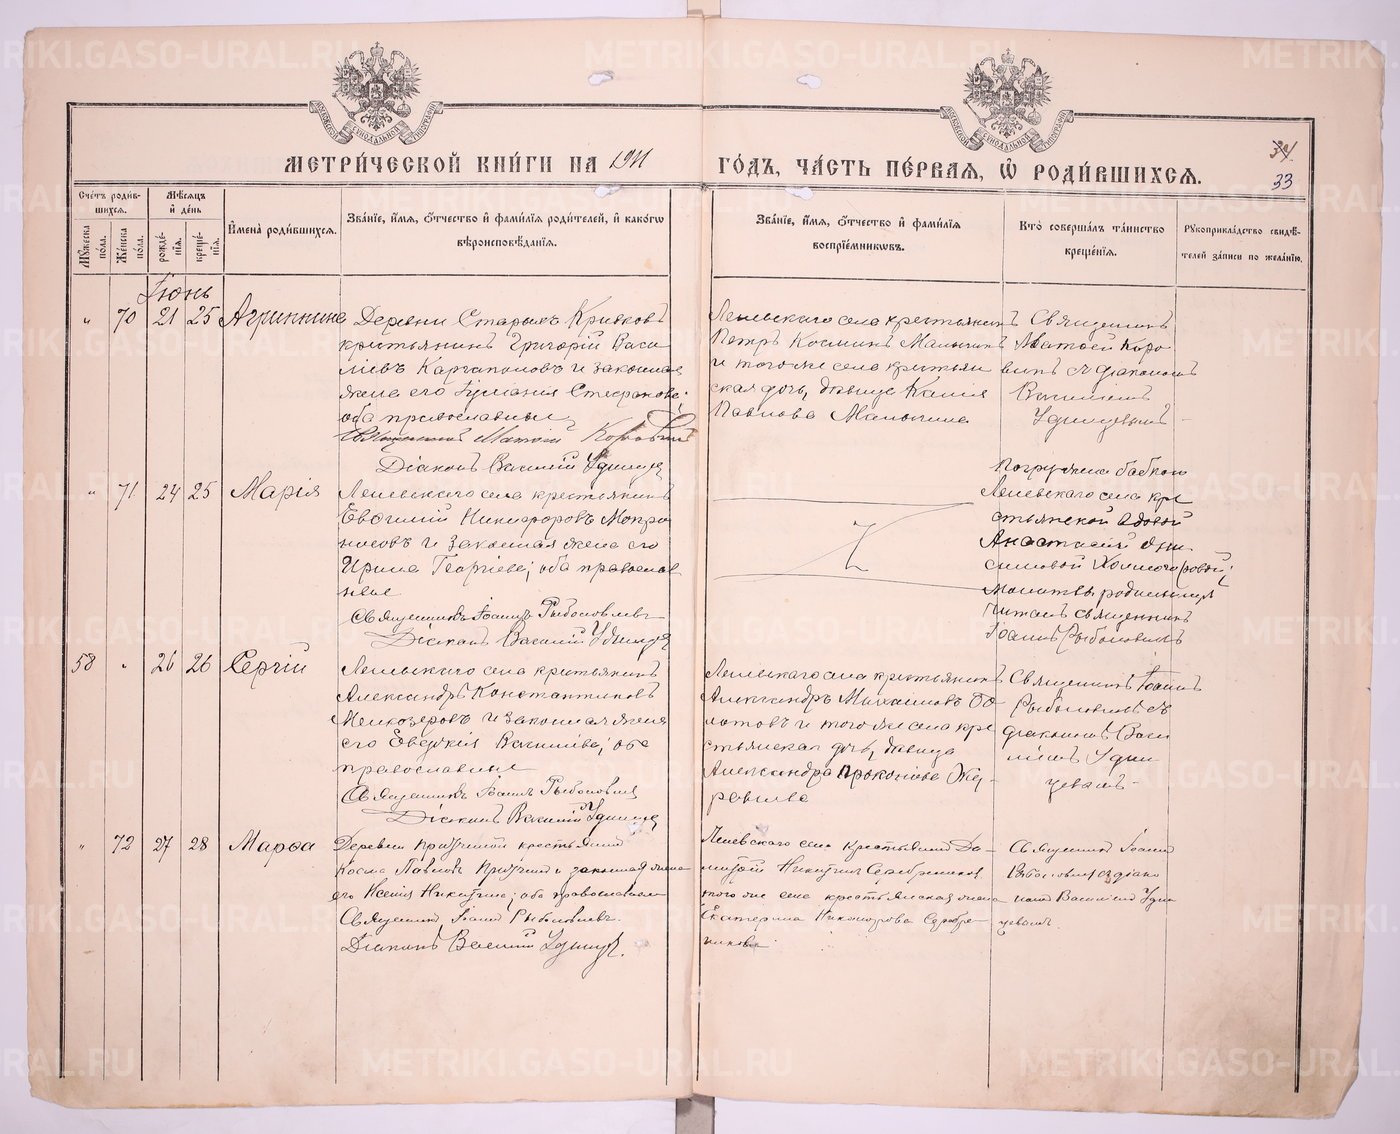 МЕТРИКИ.GASO-URAL.RU
МЕТРИ́ЧЕСКОЙ КНИ́ГИ НА 1911
ГО́ДЪ, ЧА́СТЬ ПЕ́РВАЯ, Ѽ РОДИ́ВШИХСЯ.
34.
33
Сче́тъ роди́в-
шихся.
Мѣ́сяцъ
и҆ де́нь
Мꙋ́жеска по́ла.
Же́нска по́ла.
рожде́-
нїя.
креще́-
нїя.
И҆мена̀ роди́вшихся.
Зва́нїе, и҆́мя, ѻ҆́тчество и҆ фами́лїя роди́телей, и҆ како́гѡ
вѣроисповѣ́данїя.
Зва́нїе, и҆́мя, ѻ҆́тчество и҆ фами́лїя
воспрїе́мникѡвъ.
Кто̀ соверша́лъ та́инство
креще́нїя.
Рꙋкоприкла́дство свидѣ́-
телей за́писи по жела́нїю.
Іюнь
" 70 21 25 Агриппина
Деревни Старыхъ Кривковъ
крестьянинъ Григорій Васи
ліевъ Каргаполовъ и законная
жена его Іуліанія Стефанова;
оба православные
Священникъ Матѳій Коровинъ
Діаконъ Василій Удинцевъ
крестьянинъ
Петръ Косминъ
и того же села крестьян
ская дочь, девица
Павлова
Священникъ
Матѳей Коро
винъ съ діакономъ
Василіемъ
Удинцевымъ
" 71 24 25 Марія
села крестьянинъ
Евѳимій Никифоровъ Мокро
носовъ и законная жена его
Ирина Георгіева; оба православ
ные
Священникъ Іоаннъ Рыболовлевъ
Діаконъ Василій Удинцевъ
Погружена бабкою
села кре
стьянской вдовой
Анастасіей Они
симовой
Молитвы родильницѣ
читалъ священникъ
Іоаннъ Рыболовлевъ
58 " 26 26 Сергій
села крестьянинъ
Александръ Константиновъ
Мелкозеровъ и законная жена
его Евдокія Василіева; оба
православные
Священникъ Іоаннъ Рыболовлевъ
Діаконъ Василій Удинцевъ
села крестьянинъ
Александръ Михаиловъ Бо
лотовъ и того же села кре
стьянская дочь, девица
Александра Прокопіева Же-
ребцова
Священникъ Іоаннъ
Рыболовлевъ съ
діакономъ Васи
ліемъ Удин
цевымъ
" 72 27 28 Марѳа
Деревни крестьянинъ
Косма Павловъ и законная жена
его Ксенія Никитина; оба православные
Священникъ Іоаннъ Рыболовлевъ.
Діаконъ Василій Удинцевъ.
села крестьянинъ Ди-
митрій Никитинъ Серебренниковъ
того же села крестьянская жена
Екатерина Никанорова Серебре-
никова
Священникъ Іоаннъ
Рыболовлевъ съ діако
номъ Василіемъ Удин
цевымъ.